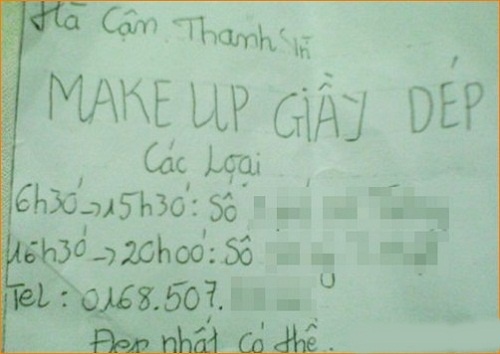 Hà Cận Thanh Sĩ
MAKE UP GIẦY DÉP
Các Loại
6h30→15h30: Số
16h30→20h00: Số
Tel: 0168.507.
Đẹp nhất có thể.